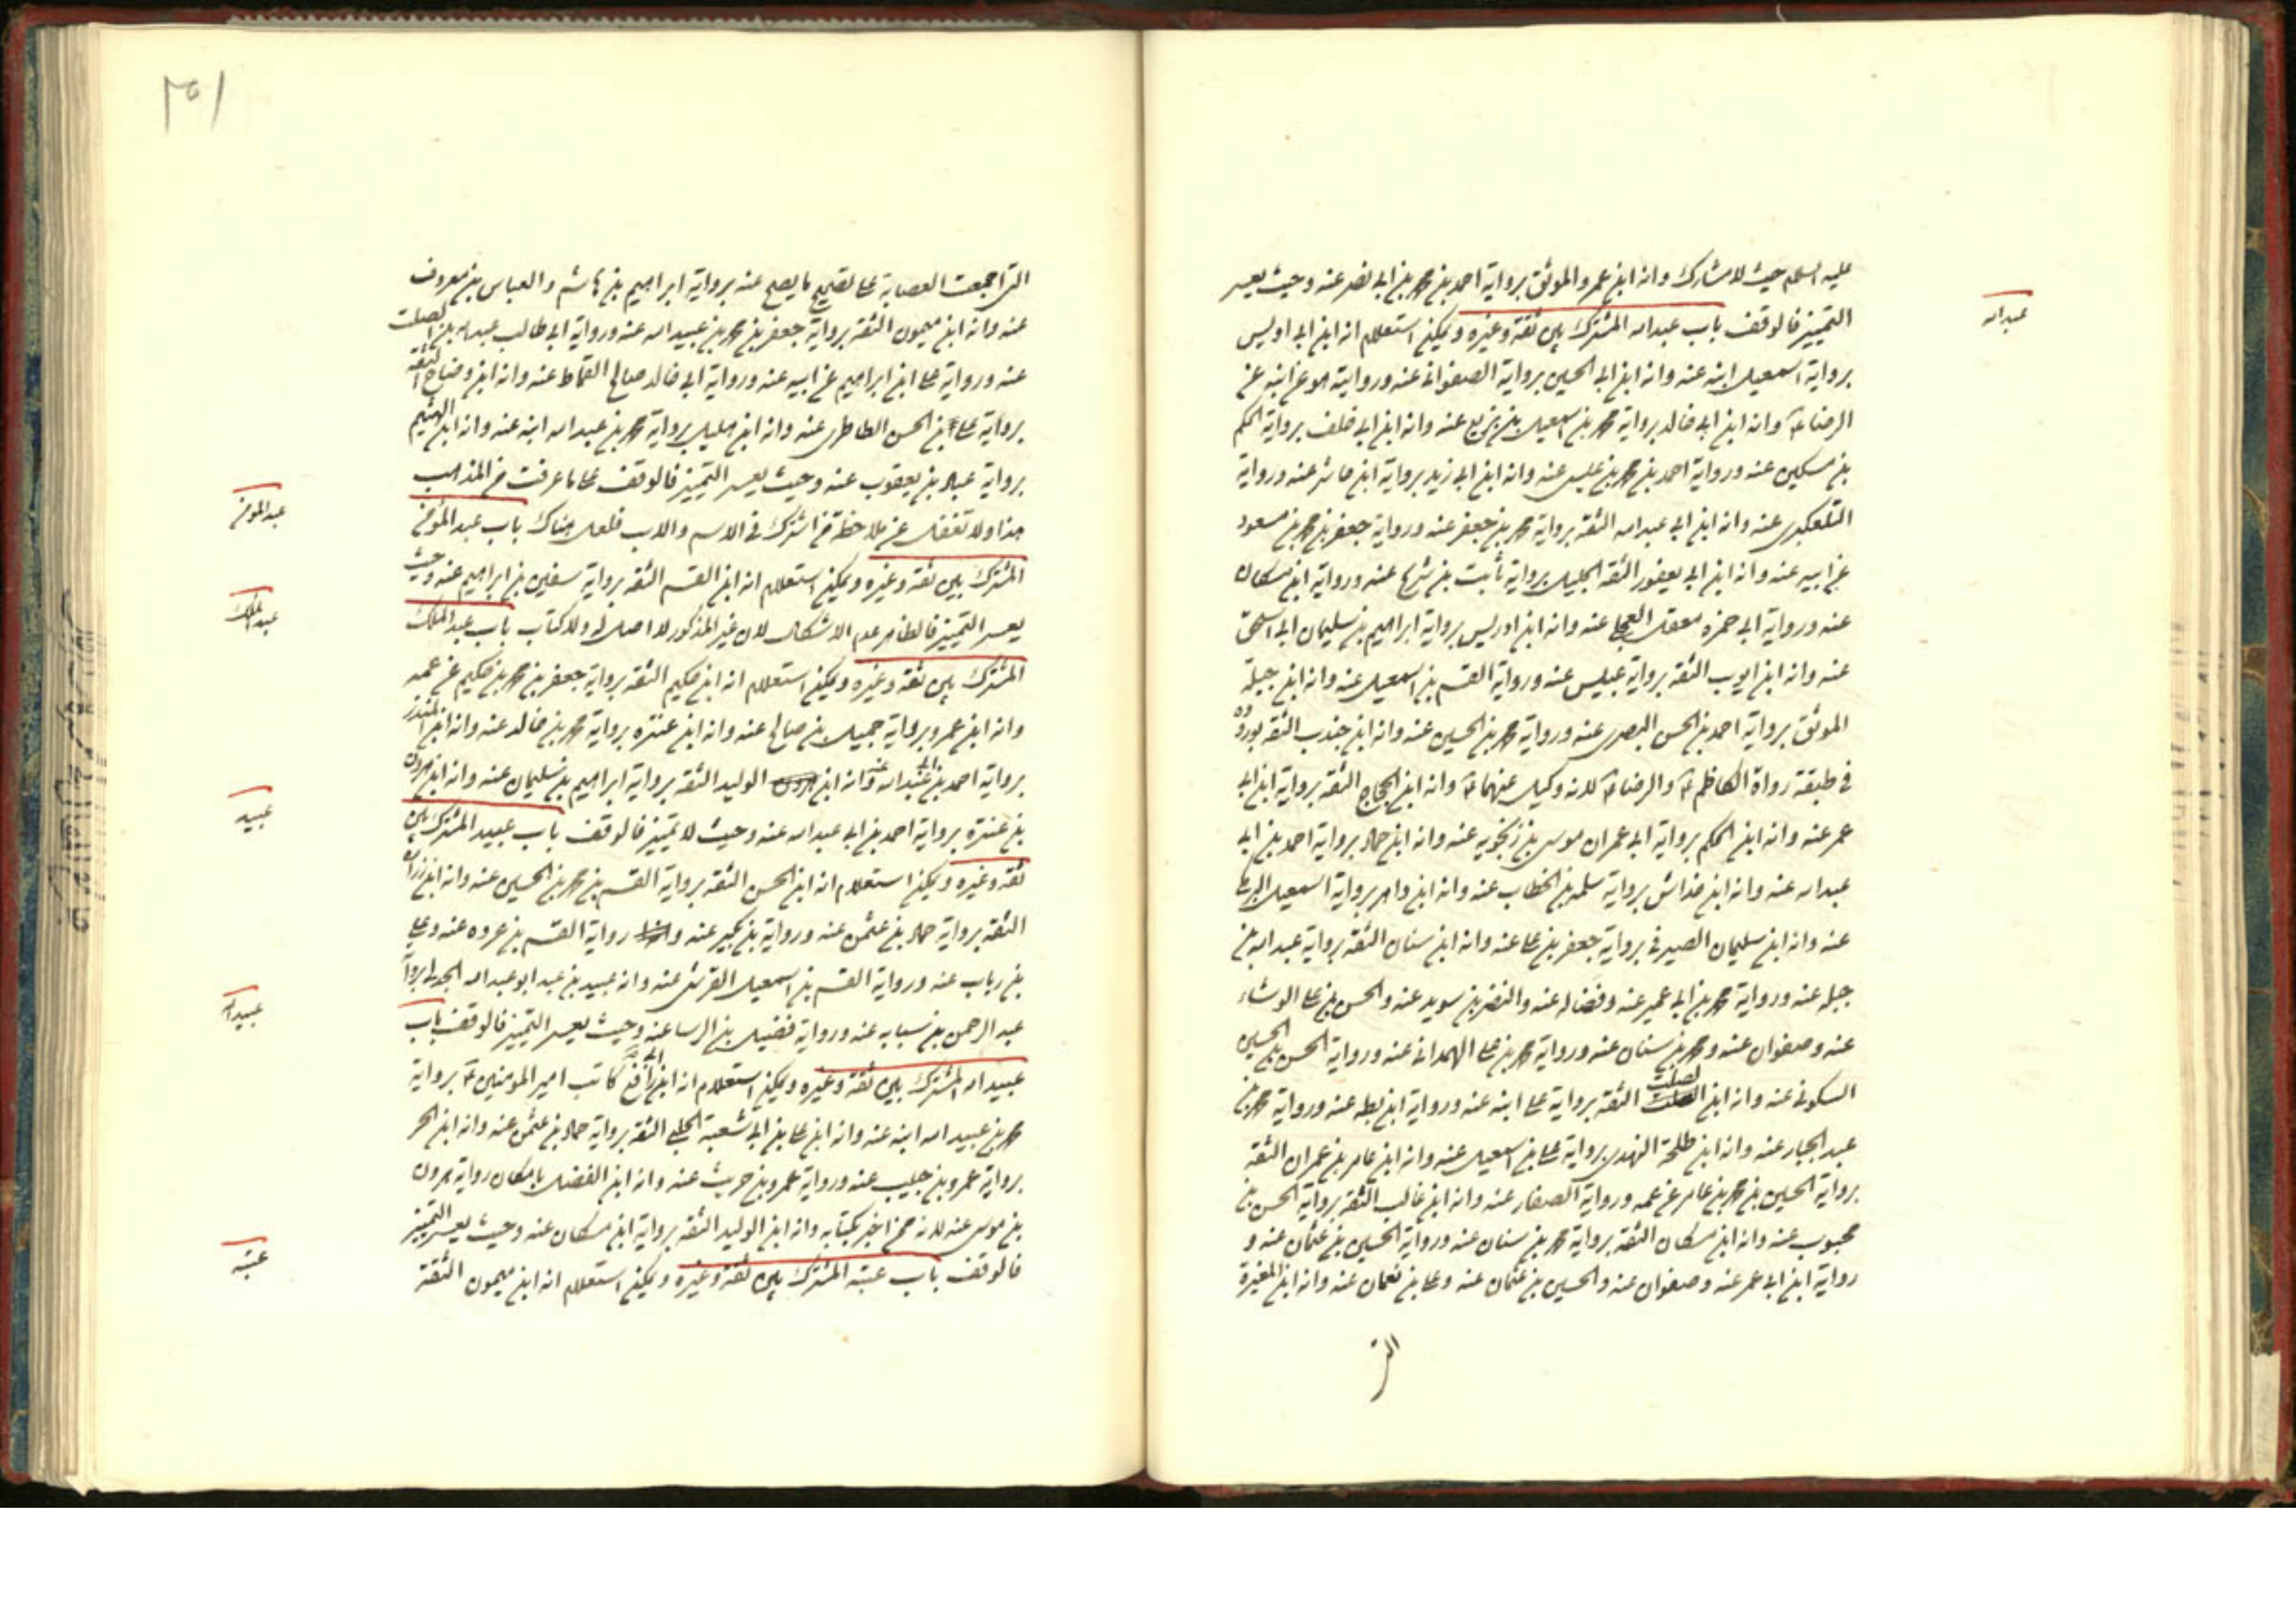 عليه السلم حيث لا مشارك وانه ابن عمرو الموثق برواية احمد بن محمد بن ابى نصر عنه وحيث يعسر
التمييز فالوقف باب عبد الله المشترك بين ثقة وغيره ويمكن استعلام انه ابن ابى اويس
برواية اسمعيل ابنه عنه وانه ابن ابى الحسين برواية الصفوانى عنه وروايته هو عن ابيه عن
الرضا ع وانه ابن ابى خالد برواية محمد بن اسمعيل بن بزيع عنه وانه ابن ابى خلف برواية الحكم
بن مسكين عنه ورواية احمد بن محمد بن عيسى عنه وانه ابن ابى زيد برواية ابن حاشر عنه ورواية
التلعكبرى عنه وانه ابن ابى عبد الله الثقة برواية محمد بن جعفر عنه ورواية جعفر بن محمد بن مسعود
عن ابيه عنه وانه ابن ابى يعفور الثقة الجليل برواية ثابت بن شريح عنه ورواية ابن مسكان
عنه ورواية ابى حمزه معقل العجلى عنه وانه ابن ادريس برواية ابراهيم بن سليمان ابى اسحق
عنه وانه ابن ايوب الثقة برواية عبيس عنه ورواية القسم بن اسمعيل عنه وانه ابن جبلة
الموثق برواية احمد بن الحسن البصرى عنه ورواية محمد بن الحسين عنه وانه ابن جندب الثقة بوروده
فى طبقة رواة الكاظم ع والرضا ع لانه وكيل عنهما ع وانه ابن الحجاج الثقة برواية ابن ابى
عمر عنه وانه ابن الحكم برواية ابى عمران موسى بن زنجويه عنه وانه ابن حماد برواية احمد بن ابى
عبد الله عنه وانه ابن خداش برواية سلمه بن الخطاب عنه وانه ابن داهر برواية اسمعيل البرمكى
عنه وانه ابن سليمان الصيرفى برواية جعفر بن على عنه وانه ابن سنان الثقة برواية عبد الله بن
جبله عنه ورواية محمد بن ابى عمير عنه وفضاله عنه والنضر بن سويد عنه والحسن بن على الوشاء
عنه وصفوان عنه ومحمد بن سنان عنه ورواية محمد بن على الهمدانى عنه ورواية الحسن بن الحسين
السكونى عنه وانه ابن الصلت الثقة برواية على ابنه عنه ورواية ابن بطه عنه ورواية محمد بن
عبد الجبار عنه وانه ابن طلحة النهدى برواية على بن اسمعيل عنه وانه ابن عامر بن عمران الثقة
برواية الحسين بن محمد بن عامر عن عمه ورواية الصفار عنه وانه ابن غالب الثقة برواية الحسن بن
محبوب عنه وانه ابن مسكان الثقة برواية محمد بن سنان عنه ورواية الحسين بن عثمان عنه و
رواية ابن ابى عمر عنه وصفوان عنه والحسين بن عثمان عنه وعلى بن نعمان عنه وانه ابن المغيرة
عبد الله
التى اجمعت العصابة على تصحيح ما يصح عنه برواية ابراهيم بن هاشم والعباس بن معروف
عنه وانه ابن ميمون الثقة برواية جعفر بن محمد بن عبيد الله عنه ورواية ابى طالب عبد الله بن الصلت
عنه ورواية على ابن ابراهيم عن ابيه عنه ورواية ابى خالد صالح القماط عنه وانه ابن وضاح الثقة
برواية على بن الحسن الطاطرى عنه وانه ابن هليل برواية محمد بن عبد الله ابنه عنه وانه ابن الهيثم
برواية عباد بن يعقوب عنه وحيث يعسر التمييز فالوقف على ما عرفت من المذاهب
هذا ولا تغفل عن ملاحظة من اشترك فى الاسم والاب فلعل هناك باب عبد المؤمن
المشترك بين ثقة وغيره ويمكن استعلام انه ابن القسم الثقة برواية سفين بن ابراهيم عنه وحيث
يعسر التمييز فالظاهر عدم الاشكال لان غير المذكور لا اصل له ولا كتاب باب عبد الملك
المشترك بين ثقة وغيره ويمكن استعلام انه ابن حكيم الثقة برواية جعفر بن محمد بن حكيم عن عمه
وانه ابن عمرو برواية جميل بن صالح عنه وانه ابن عنتره برواية محمد بن خالد عنه وانه ابن المنذر
برواية احمد بن ابى عبد الله عنه وانه ابن الوليد الثقة برواية ابراهيم بن سليمان عنه وانه ابن هرون
بن عنترة برواية احمد بن ابى عبد الله عنه وحيث لا تمييز فالوقف باب عبيد المشترك بين
ثقة وغيره ويمكن استعلام انه ابن الحسن الثقة برواية القسم بن محمد بن الحسين عنه وانه ابن زراره
الثقة برواية حماد بن عثمن عنه ورواية بن بكير عنه ورواية القسم بن عروه عنه وعلى
بن رباب عنه ورواية القسم بن اسمعيل القرشى عنه وانه عبيد بن عبد ابو عبد الله الجدلى برواية
عبد الرحمن بن سيابه عنه ورواية فضيل بن الرسا عنه وحيث يعسر التمييز فالوقف باب
عبيد الله المشترك بين ثقة وغيره ويمكن استعلام انه ابن ابى رافع كاتب امير المومنين ع برواية
محمد بن عبيد الله ابنه عنه وانه ابن على بن ابى شعبة الحلبى الثقة برواية حماد بن عثمن عنه وانه ابن الحر
برواية عمرو بن حبيب عنه ورواية عمرو بن حريث عنه وانه ابن الفضل بامكان رواية هرون
بن موسى عنه لانه ممن اخبر بكتابه وانه ابن الوليد الثقة برواية ابن مسكان عنه وحيث يعسر التمييز
فالوقف باب عتبة المشترك بين ثقة وغيره ويمكن استعلام انه ابن ميمون الثقة
عبد المومن
عبد الملك
عبيد
عبيد الله
عتبه